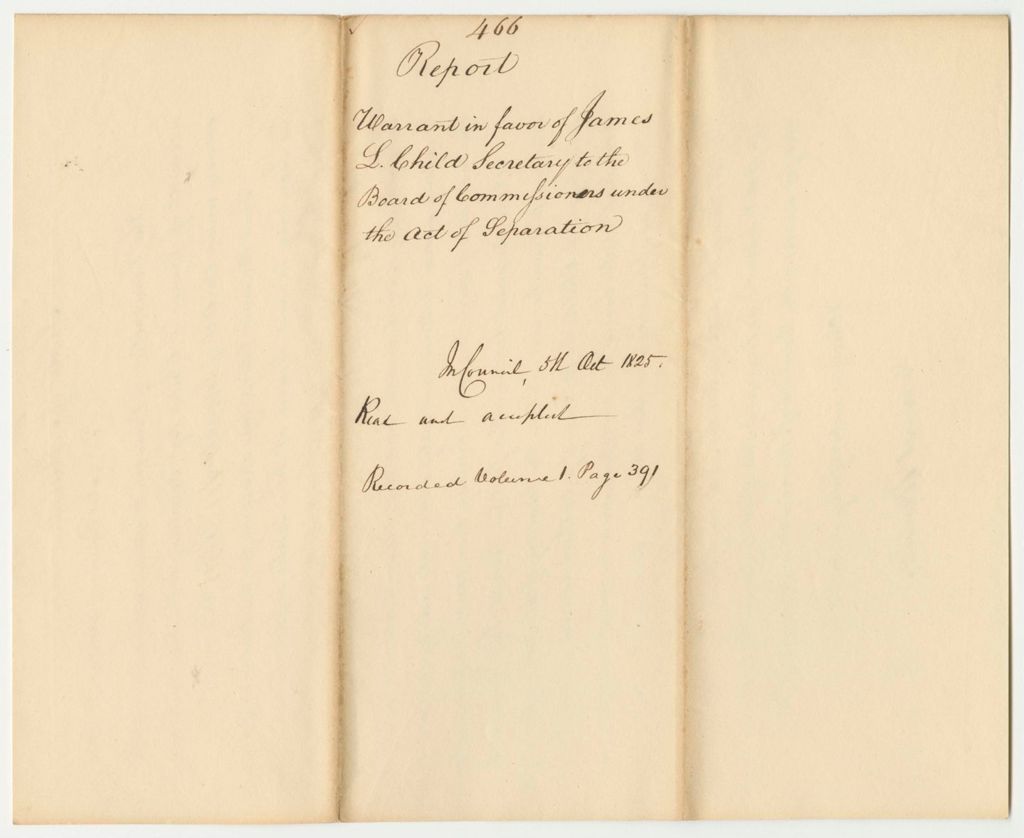 466
Report
Warrant in favor of James
L. Child Secretary to the
Board of Commissioners under
the Act of Separation
In Council, 5th Oct 1825.
Read and accepted
Recorded Volume 1. Page 391